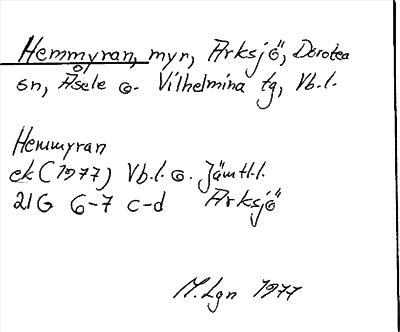 Hemmyran, myr, Arksjö, Dorotea
sn, Åsele o. Vilhelmina tg, Vb.l.
Hemmyran
ek (1977) Vb.l. o. Jämtl.l.
21G 6-7 c-d Arksjö
M.Lgn 1977